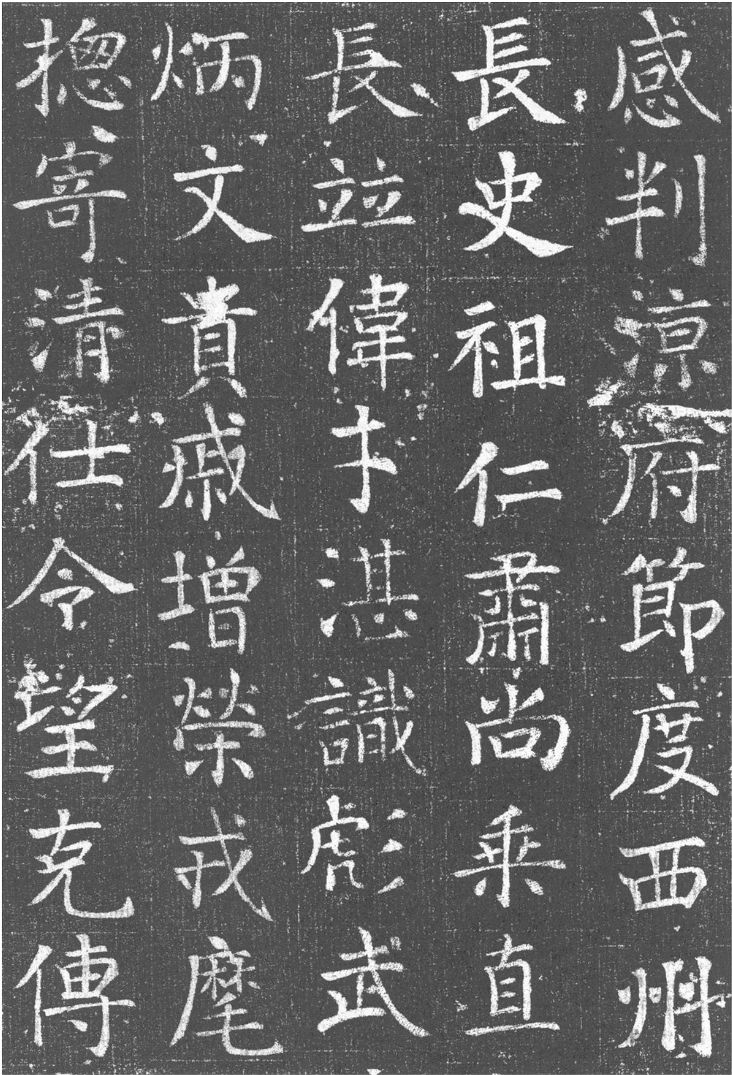 感判涼府節度西州
長史祖仁肅尚乘直
長並偉才湛識彪武
炳文貴戚增榮戎麾
揔寄清仕令望克傳